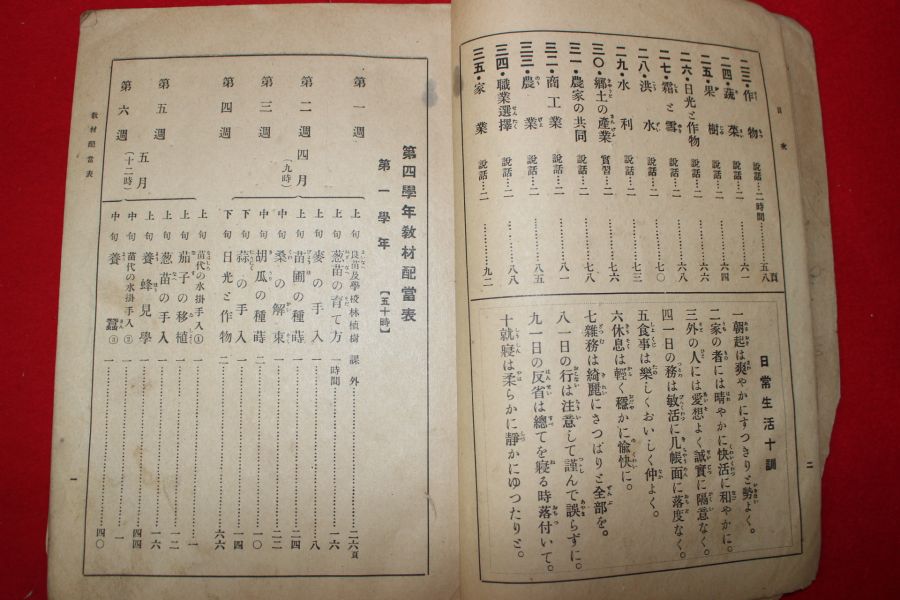 目次
二三・作物 說話…二時間………五八頁
二四・蔬菜 說話…二………六一
二五・果樹 說話…二………六四
二六・日光と作物 說話…二………六八
二七・霜と雪 說話…二………六八
二八・洪水 說話…一………七〇
二九・水利 說話…二………七三
三〇・鄕土の產業 實習…二………七六
三一・農家の共同 說話…二………七八
三二・商工業 說話…二………八一
三三・農業 說話…一………八五
三四・職業選擇 說話…二………八八
三五・家業 說話…二………九二
日常生活十訓
一朝起は爽やかにすつきりと勢よく。
二家の者には晴やかに快活に和やかに。
三外の人には愛想よく誠實に隔意なく。
四一日の務は敏活に几帳面に落度なく。
五食事は樂しくおいしく仲よく。
六休息は輕く穩かに愉快に。
七雜務は綺麗にさつぱりと全部を。
八一日の行は注意して謹んで誤らずに。
九一日の反省は總てを寢る時落付いて。
十就寢は柔らかに靜かにゆつたりと。
二
敎材配當表
第四學年敎材配當表
第一學年【五十時】
第一週
第二週
第三週
第四週
四月
(九時)
第五週
第六週
五月
(十二時)
上旬 良苗及學校林植樹 課外………二六頁
上旬 葱苗の育て方 一時間………一六
上旬 麥の手入 一………八
上旬 苗圃の種蒔 一………二四
中旬 桑の解束 一………二二
中旬 胡瓜の種蒔 一………一〇
下旬 蒜の手入 一………一四
下旬 日光と作物 二………六六
上旬 苗代の水掛手入① 一………一
上旬 茄子の移植 一………一二
上旬 葱苗の手入 一………一六
上旬 養蜂見學 一………四四
中旬 苗代の水掛手入② 一………一
中旬 養蠶③ 一………四〇
一